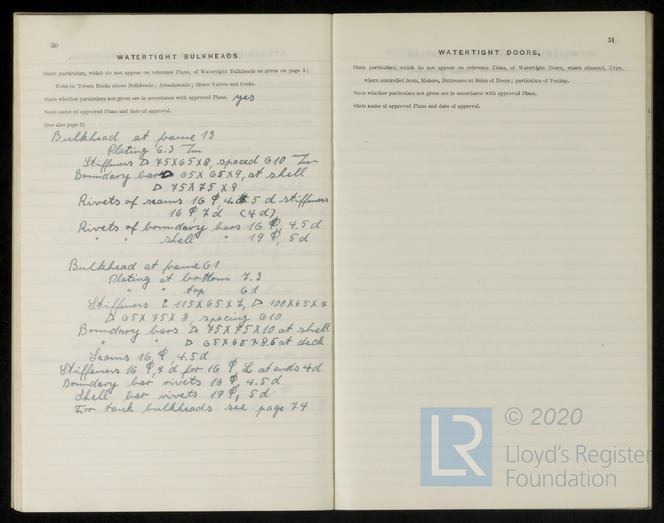 30
WATERTIGHT BULKHEADS.
State particulars, which do not appear on reference Plans, of Watertight Bulkheads as given on page 3;
Webs in 'Tween Decks above Bulkheads; Attachments; Sluice Valves and Cocks.
State whether particulars not given are in accordance with approved Plans. yes
State name of approved Plans and date of approval.
(See also page 6)
Bulkhead at frame 13
Plating 6.3 m/m
Stiffeners 75X65X8, spaced 610 m/m
Boundary bars 65X65X9, at shell
75X75X9
Rivets of seams 16 φ, 4.5 d stiffeners
16 φ, 7d (4d)
Rivets of boundary bars 16 φ, 4.5 d
" " shell " 19 φ, 5d
Bulkhead at frame 61
Plating at bottom 7.3
" " top 6.1
Stiffeners 115X65X7, 100X65X7
65X75X8, spacing 610
Boundary bars 75X75X10 at shell
" " 65X65X8.5 at deck
Seams 16 φ, 4.5d
Stiffeners 16 φ, 7d for 16 φ, at ends 4d
Boundary bar rivets 16 φ 4.5d
Shell bar rivets 19 φ, 5d
For tank bulkheads see page 74
31
WATERTIGHT DOORS,
State particulars, which do not appear on reference Plans, of Watertight Doors, where situated, Type,
where controlled from, Makers, Buttresses at Sides of Doors; particulars of Testing.
State whether particulars not given are in accordance with approved Plans.
State name of approved Plans and date of approval.
LR
© 2020
Lloyd's Register
Foundation